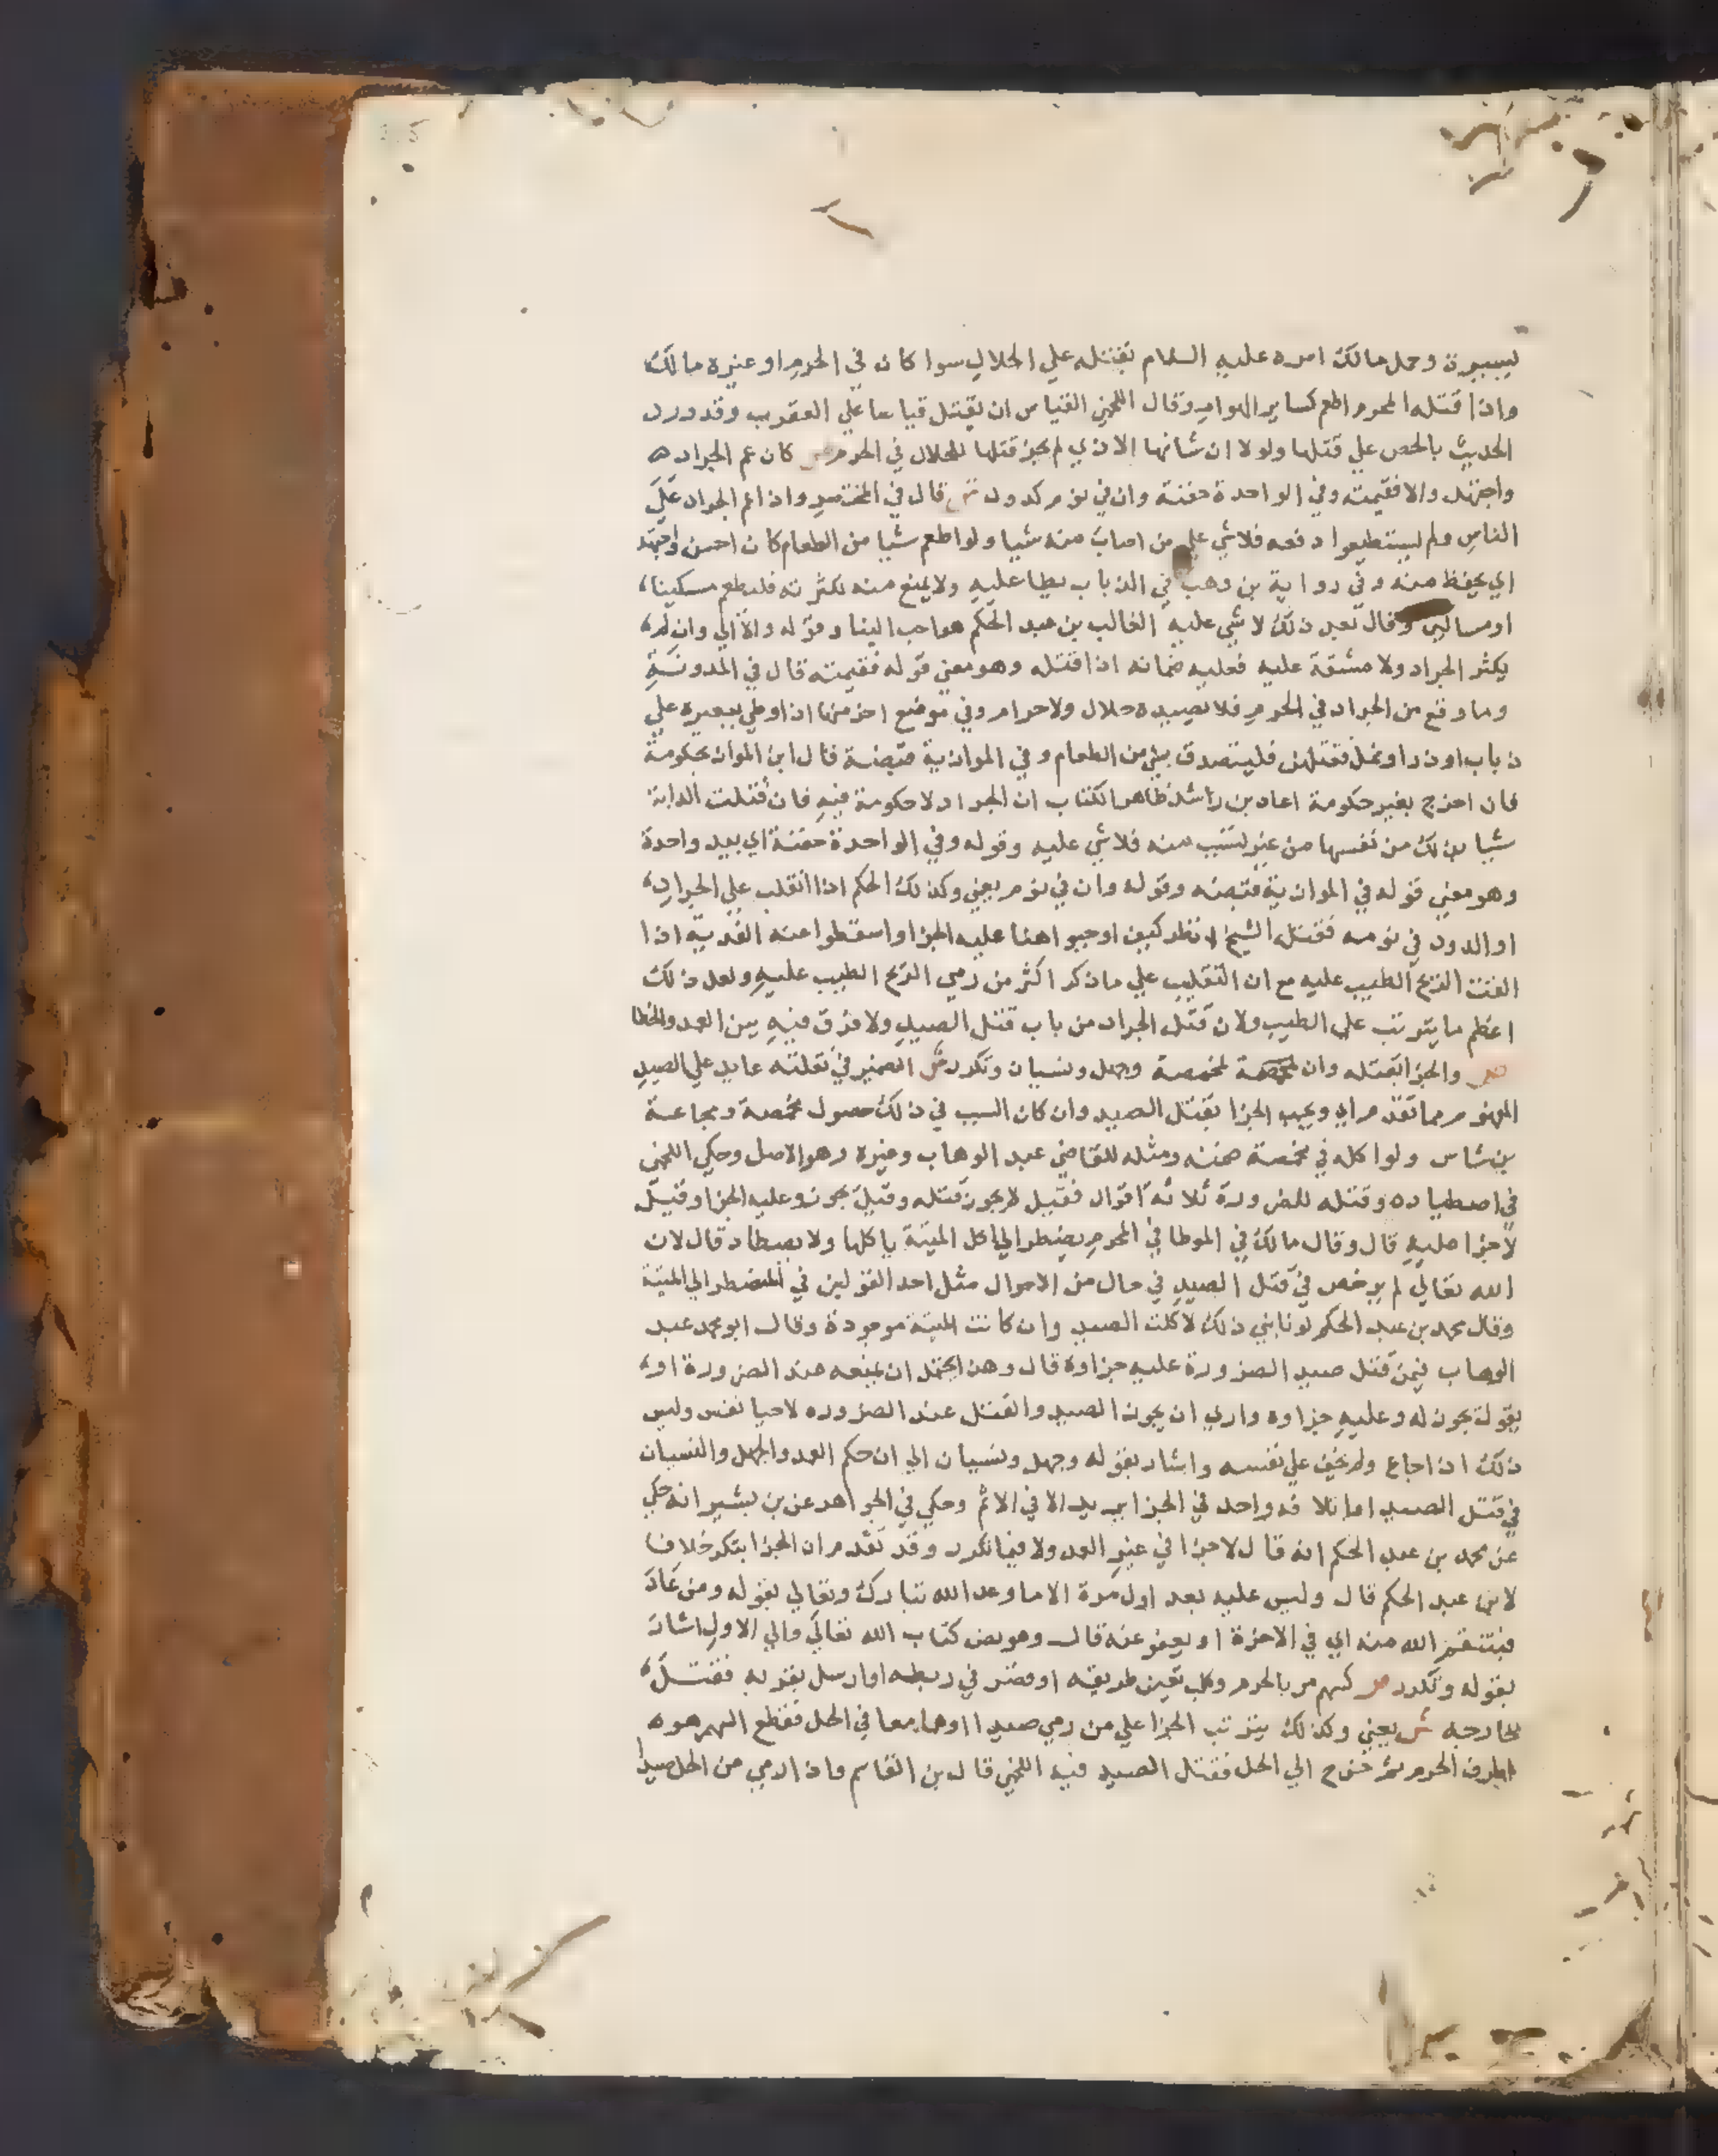 يسيرة وحمل مالك امره عليه السلام بقتله علي الحلال سوا كان في الحرم او غيره مالك
واذا قتله المحرم اطعم كساير الهوام وقال اللخمي القياس ان يقتل قياسا علي العقرب وقد ورد
الحديث بالحض علي قتلها ولولا ان شانها الاذي لم يجز قتلها للحلال في الحرم ص كان عم الجراد ه
واجتهد والا فقيمته وفي الواحدة حفنة وان في نوم كدود ش قال في المختصر واذا عم الجراد علي
الناس ولم يستطيعوا دفعه فلا شي علي من اصاب منه شيا ولو اطعم شيا من الطعام كان احسن واجتهد
اي يحفظ منه وفي رواية بن وهب في الذباب يطا عليه ولا يمنع منه لكثرته فليطعم مسكينا،
او مساكين وقال بعد ذلك لا شي عليه الغالب بن عبد الحكم هو احب الينا وقوله والا اي وان لم،
يكثر الجراد ولا مشقة عليه فعليه ضمانه اذا قتله وهو معني قوله فقيمته قال في المدونة
وما وقع من الجراد في الحرم فلا يصيده حلال ولا حرام وفي موضع اخر منها اذا وطي ببعيره علي
ذباب او ذر او نمل فقتلهن فليتصدق بشي من الطعام وفي الموازية قبضة قال ابن المواز بحكومة
فان اخرج بغير حكومة اعاد بن راشد ظاهر الكتاب ان الجراد لا حكومة فيه فان قتلت الدابة
شيا من ذلك من نفسها من غير تسبب منه فلا شي عليه وقوله وفي الواحدة حفنة اي بيد واحدة
وهو معني قوله في الموازية قبضة وقوله وان في نوم يعني وكذلك الحكم اذا انقلب علي الجراد،
او الدود في نومه فقتله الشيخ انظر كيف اوجبوا هنا عليه الجزا واسقطوا عنه الفدية اذا
القت الريح الطيب عليه مع ان التقليب علي ما ذكر اكثر من رمي الريح الطيب عليه ولعل ذلك
اعظم ما يترتب علي الطيب ولان قتل الجراد من باب قتل الصيد ولا فرق فيه بين العمد والخطا
ص والجزا بقتله وان لمخمصة وجهل ونسيان وتكرر ش الضمير في بقتله عايد علي الصيد
المفهوم مما تقدم اي ويجب الجزا بقتل الصيد وان كان السبب في ذلك حصول مخمصة ومجاعة
بن شاس ولو اكله في مخمصة ضمنه ومثله للقاضي عبد الوهاب وغيره وهو الاصل وحكي اللخمي
في اصطياده وقتله للضرورة ثلاثة اقوال فقيل لا يجوز قتله وقيل يجوز وعليه الجزا وقيل
لا جزا عليه قال وقال مالك في الموطا في المحرم يضطر الي اكل الميتة ياكلها ولا يصطاد قال لان
الله تعالي لم يرخص في قتل الصيد في حال من الاحوال مثل احد القولين في المضطر الي الميتة
وقال محمد بن عبد الحكم لو نابني ذلك لاكلت الصيد وان كانت الميتة موجودة وقال ابو محمد عبد
الوهاب فيمن قتل صيد الضرورة عليه جزاوه قال وهذا يحتمل ان يمنعه عند الضرورة او،
يقول يجوز له وعليه جزاوه واري ان يجوز الصيد والقتل عند الضروره لاحيا نفس وليس
ذلك اذا جاع ولم يخف علي نفسه واشار بقوله وجهل ونسيان الي ان حكم العمد والجهل والنسيان
في قتل الصيد واحد في الجزا يريد الا في الاثم وحكي في الجواهر عن بن بشير انه حكي
عن محمد بن عبد الحكم انه قال لا جزا في غير العمد ولا فيما تكرر وقد تقدم ان الجزا يتكرر خلافا
لابن عبد الحكم قال وليس عليه بعد اول مرة الا ما وعد الله تبارك وتعالي بقوله ومن عاد
فينتقم الله منه اي في الاخرة او يعفو عنه قال وهو نص كتاب الله تعالي والي الاول اشار
بقوله وتكرر ص كسهم مر بالحرم وكلب تعين طريقه او قصر في ربطه او ارسل بقربه فقتل،
خارجه ش يعني وكذلك يترتب الجزا علي من رمي صيدا وهما معا في الحل فقطع السهم هوه
اطراف الحرم ثم خرج الي الحل فقتل الصيد فيه اللخمي قال بن القاسم واذا رمي من الحل صيدا